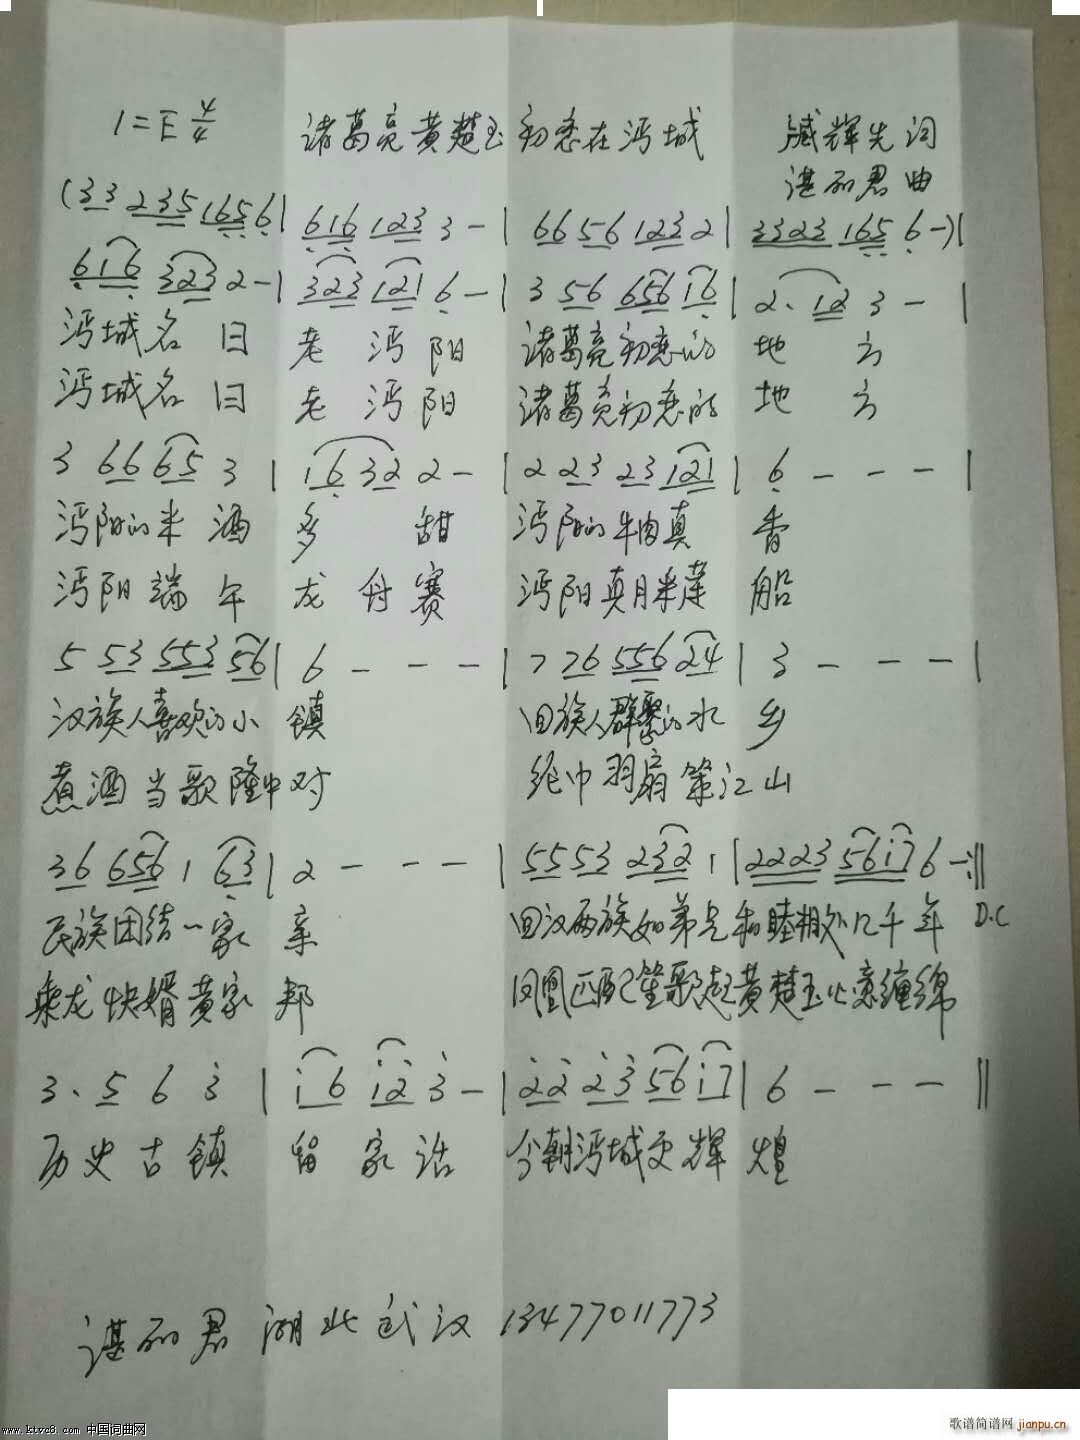 1=E 4/4 诸葛亮黄楚玉初恋在沔城 臧辉先词
谌丽君曲
(33 235 1656| 616 123 3 -| 66 56 123 2| 3323 165 6 -)|
616 323 2 -| 323 121 6 -| 3 56 656 16| 2· 12 3 - |
沔城名曰 老沔阳 诸葛亮初恋的 地方
沔城名曰 老沔阳 诸葛亮初恋的 地方
3 66 65 3 | 16 32 2 -| 2 23 23 121 | 6 - - - |
沔阳的米酒 多甜 沔阳的牛肉真 香
沔阳端午 龙舟赛 沔阳真月米莲 船
5 53 553 56| 6 - - - | 7 76 556 24 | 3 - - - |
汉族人喜欢的小 镇 回族人群聚的水 乡
煮酒当歌隆中对 纶巾羽扇策江山
36 656 1 63| 2 - - - | 5553 232 1 |2223 56i7 6 -:||
民族团结一家 亲 回汉两族如弟兄和睦相处几千年 D.C
乘龙快婿黄家 邦 凤凰匹配笙歌起黄楚玉 恋缠绵
3· 5 6 3 | i6 i2 3 -| 22 23 56 i7| 6 - - - ||
历史古镇 留家话 今朝沔城更辉 煌
谌丽君 湖北武汉 13477011773
www.ktvc8.com 中国词曲网
歌谱简谱网 jianpu.cn